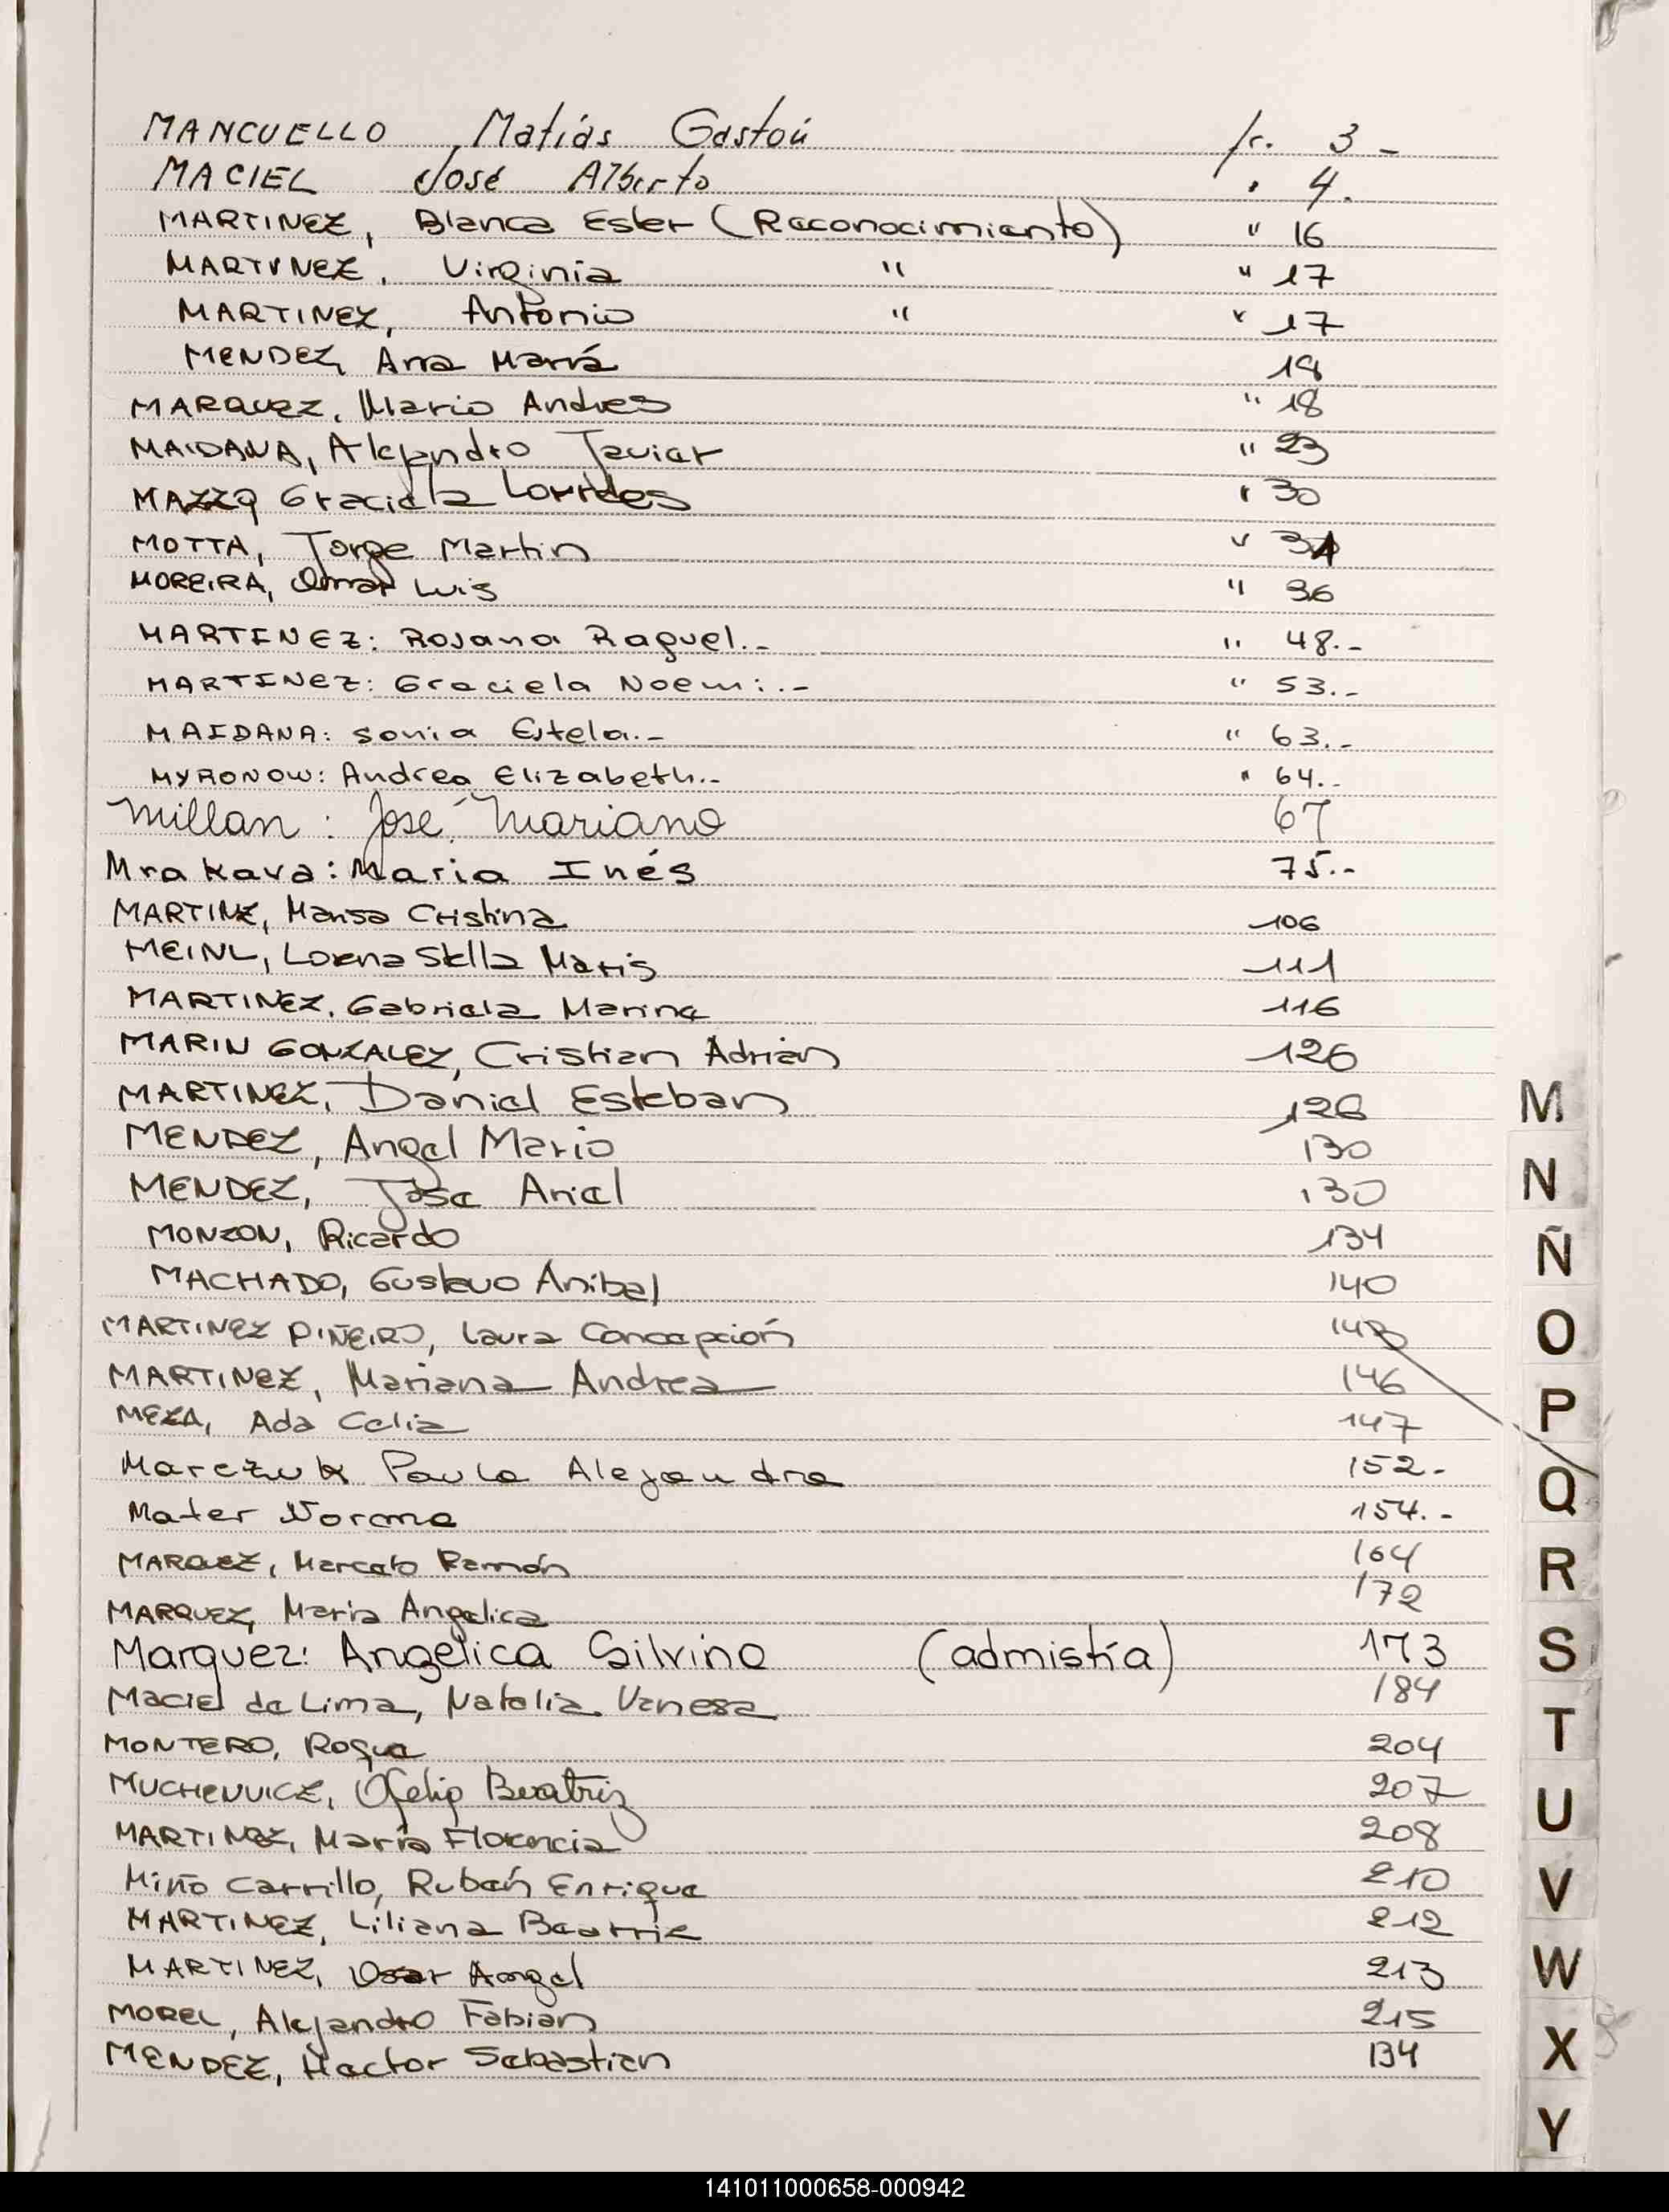 MANCUELLO Matías Gastón fr. 3 -
MACIEL José Alberto " 4.
MARTINEZ, Blanca Ester (Reconocimiento) " 16
MARTINEZ, Virginia " " 17
MARTINEZ, Antonio " " 17
MENDEZ, Ana María 18
MARQUEZ, Mario Andres " 18
MAIDANA, Alejandro Javier " 23
MAZZO Graciela Lourdes " 30
MOTTA, Jorge Martin " 31
MOREIRA, Omar Luis " 36
MARTINEZ: Rosana Raquel.- " 48.-
MARTINEZ: Graciela Noemi:.- " 53.-
MAIDANA: Sonia Estela.- " 63.-
MYRONOW: Andrea Elizabeth.- " 64.-
Millan: José Mariano 67
Mrakava: Maria Inés 75.-
MARTINZ, Marisa Cristina 106
MEINL, Lorena Stella Maris 111
MARTINEZ, Gabriela Marina 116
MARIN GONZALEZ, Cristian Adrián 126
MARTINEZ, Daniel Esteban 126
MENDEZ, Angel Mario 130
MENDEZ, Jose Ariel 130
MONZON, Ricardo 134
MACHADO, Gustavo Anibal 140
MARTINEZ PIÑEIRO, Laura Concepción 143
MARTINEZ, Mariana Andrea 146
MEZA, Ada Celia 147
Marczuk Paula Alejandra 152.-
Mater Norma 154.-
MARQUEZ, Marcelo Ramón 164
MARQUEZ, María Angelica 172
Marquez: Angélica Silvina (admistía) 173
Maciel de Lima, Natalia Vanesa 184
MONTERO, Roque 204
MUCHENVICZ, Ofelia Beatriz 207
MARTINEZ, María Florencia 208
Miño Carrillo, Rubén Enrique 210
MARTINEZ, Liliana Beatriz 212
MARTINEZ, Angel 213
MOREL, Alejandro Fabian 215
MENDEZ, Hector Sebastian 134
M
N
Ñ
O
P
Q
R
S
T
U
V
W
X
Y
141011000658-000942